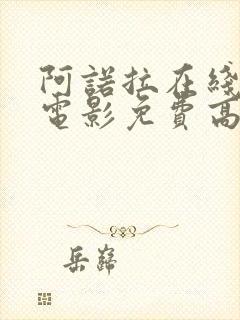 阿諾拉在綫
電影免費高
岳巋